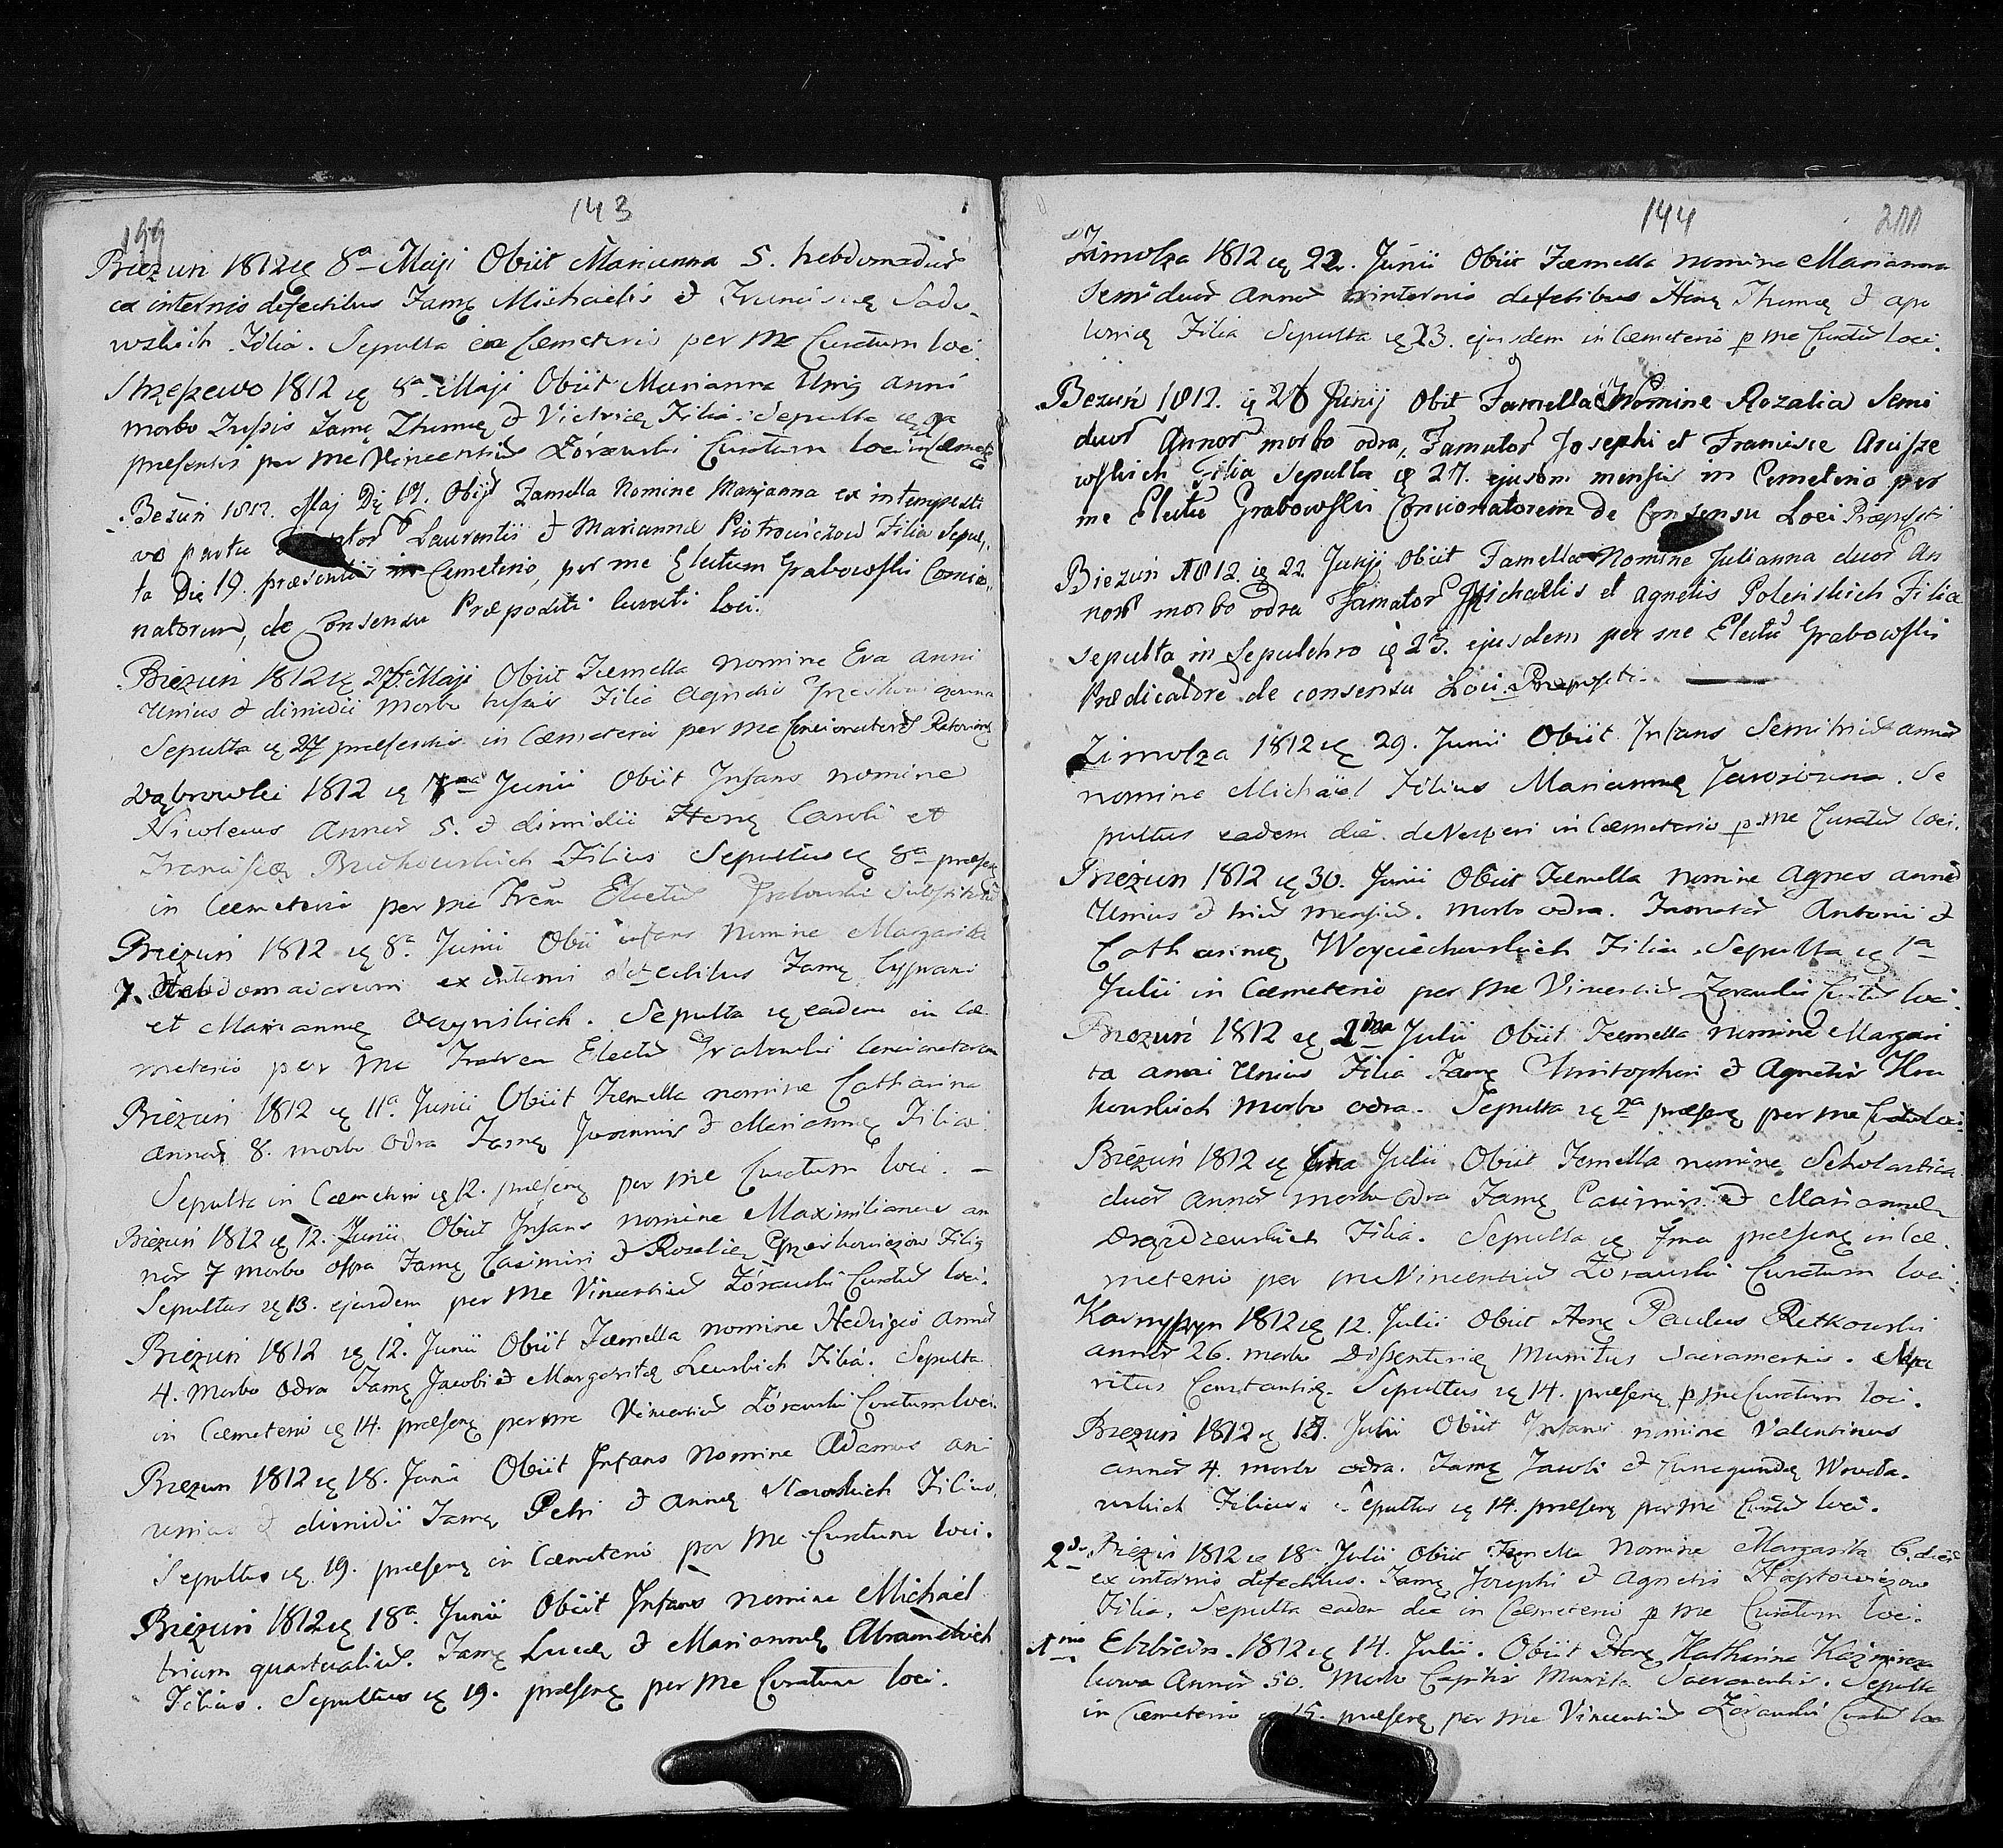 143
199
Biezun 1812 ię 8a Maji Obiit Marianna 5. hebdomadur
ex internis defectibus Famę Michaelis et Franciscę Sado-
wskich Filia. Sepulta in Cæmeterio per me Curatum loci.
Strzeszewo 1812 ię 8a Maji Obiit Marianna Unig anni
morbo Tussis Famę Thomę et Victorię Filia Sepulta ię 9a
præsentis per me Vincentiũ Zórawski Curatum loci in Cæmete
Bezuń 1812. Maj Dię 17. Obijt Famella Nomine Marjanna ex intempesti
vo partu Laurentii et Mariannæ Piotrowiczow Filia Sepul,,
ta Dię 19. præsentis in Cemeterio, per me Electum Grabowski Concio,,
natorem, de Consensu Præpositi Curati loci.
Biezun 1812 ię 26. Maji Obiit Fæmella nomine Eva anni
Unius et dimidii morbo tussis Filia Agnetis
Sepulta ię 27 præsentis in Cæmeterio per me Concionatorẽ
Dąbrowki 1812 ię 7ma Junii Obiit Infans nomine
Nicolaus Annor 5. et dimidii Honę Caroli et
Franciscę Filius Sepultus ię 8a præsen
in Cæmeterio per me Frem Electũ Grabowski
Biezun 1812 ię 8a Junii Obii infans nomine Margarita
7. Hebdomadarum ex internis defectibus Famę Cypriani
et Mariannę. Sepulta ię eadem in Cæ
meterio per me Fratrem Electũ Grabowski Concionatorem
Biezun 1812 ię 11a Junii Obiit Fæmella nomine Catharina
Annor 8. morbo odra Famę Joannis et Mariannę Filia
Sepulta in Cæmeterio ię 12. præsenę per me Curatum loci. —
Biezun 1812 ię 12. Junii Obiit Infans nomine Maximilianus an
nor 7 morbo ospa Famę Casimiri et Rosaliæ Filię
Sepultus ię 13. ejusdem per me Vincentiũ Zórawski Curatũ loci.
Biezun 1812 ię 12. Junii Obiit Fæmella nomine Hedvigis Annor
4. morbo odra Famę Jacobi et Margaritę Filia. Sepulta
in Cæmeterio ię 14. præsenę per me Vincentiũ Zórawski Curatum loci.
Biezun 1812 ię 18. Junii Obiit Infans nomine Adamus ani
unius et dimidii Famę Petri et Annę Filius.
Sepultus ię 19. præsenę in Cæmeterio per me Curatum loci.
Biezun 1812 ię 18a Junii Obiit Infans nomine Michäel
trium quartualiũ. Famę Lucæ et Mariannæ
Filius. Sepultus ię 19. præsenę per me Curatum loci.
144
200
Zimolza 1812 ię 22. Junii Obiit Fæmella nomine Marianna
Semiduor Annor internis defectibus Honę Thomę et Apo
lonię Filia Sepulta ię 23. ejusdem in Cæmeterio p me Curatũ loci.
Bezuń 1812. ię 26 Junij Obit Famella Nomine Rozalia Semi
duor Annor morbo odra, Famator Josephi et Francisce
wskich Filia Sepulta ię 27. ejusdm mensis in Cemeterio per
me Electũ Grabowski Concionatorem de Consensu Loci Præpositi
Biezuń 1812. ię 22 Junji Obiit Famella Nomine Julianna duor An
nor morbo odra Famator Michaelis et Agnetis Polenskich Filia
sepulta in Sepulchro ię 23. ejusdem per me Electũ Grabowski
Prædicatore de consensu Loci Præpositi.
Zimolza 1812 ię 29. Junii Obiit Infans Semitriũ annor
nomine Michäel Filius Mariannę. Se
pultus eadem die de Vesperi in Cæmeterio p me Curatũ loci.
Biezun 1812 ię 30. Junii Obiit Fæmella nomine Agnes anni
Unius et triũ mensiũ. morbo odra. Famator Antonii et
Catharinę Woyciechowskich Filia. Sepulta ię 1a
Julii in Cæmeterio per me Vincentiũ Zorawski Curatũ loci.
Biezuń 1812 ię 1ma Julii Obiit Fæmella nomine Margari
ta anni Unius Filia Famę Christophori et Agnetis
kowskich morbo odra. Sepulta ię 2a præsenę per me Curatũ loci.
Biezuń 1812 ię Julii Obiit Femella nomine Scholastica
duor annor morbo odra Famę Casimiri et Mariannæ
Filia. Sepulta ię 7ma præsenę in Cæ.
meterio per me Vincentiũ Zórawski Curatum loci.
Karnyszyn 1812 ię 12. Julii Obiit Honę Paulus Retkowski
annor 26. morbo Dissenterię Munitus Sacramentis. Ma
ritus Constantię. Sepultus ię 14. præsenę p me Curatum loci.
Biezun 1812 ię 13. Julii Obiit Infans nomine Valentinus
annor 4. morbo odra. Famę Jacobi et Cunegundę
wskich Filius. Sepultus ię 14. præsenę per me Curatũ loci.
2do Biezun 1812 ię 18a Julii Obiit Femella Nomine Margarita 6. dier
ex internis defectibus. Famę Josephi et Agnetis
Filia. Sepulta eadem die in Cæmeterio p me Curatum loci.
1mo 1812 ię 14. Julii. Obiit Honę Katharina Kazmirza
kowa Annor 50. Morbo Capitis Munita Sacramentis. Sepulta
in Cæmeterio ię 15. præsenę per me Vincentiũ Zórawski Curatũ loci